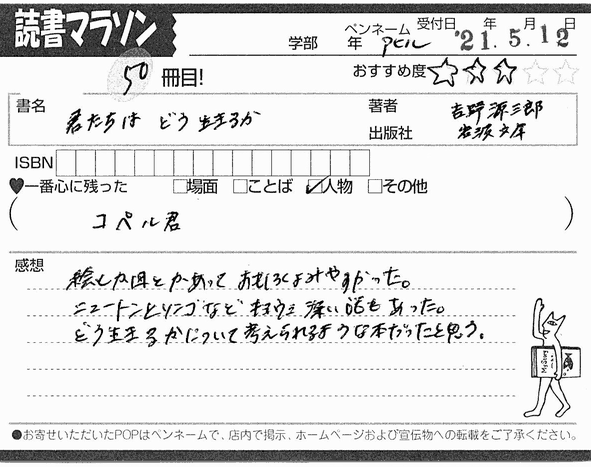 読書マラソン
学部 年 ペンネーム アヒル 受付日 '21.5.12 年 月 日
50 冊目!
おすすめ度 ☆☆☆☆☆
書名 君たちは どう生きるか
著者 吉野源三郎
出版社 岩波文庫
ISBN
♥一番心に残った □場面 □ことば ☑人物 □その他
( コペル君 )
感想
絵とか図とかあって おもしろくよみやすかった。
ニュートンとリンゴなど 深い話もあった。
どう生きるかについて考えられるような本だったと思う。
●お寄せいただいたPOPはペンネームで、店内で掲示、ホームページおよび宣伝物への転載をご了承ください。